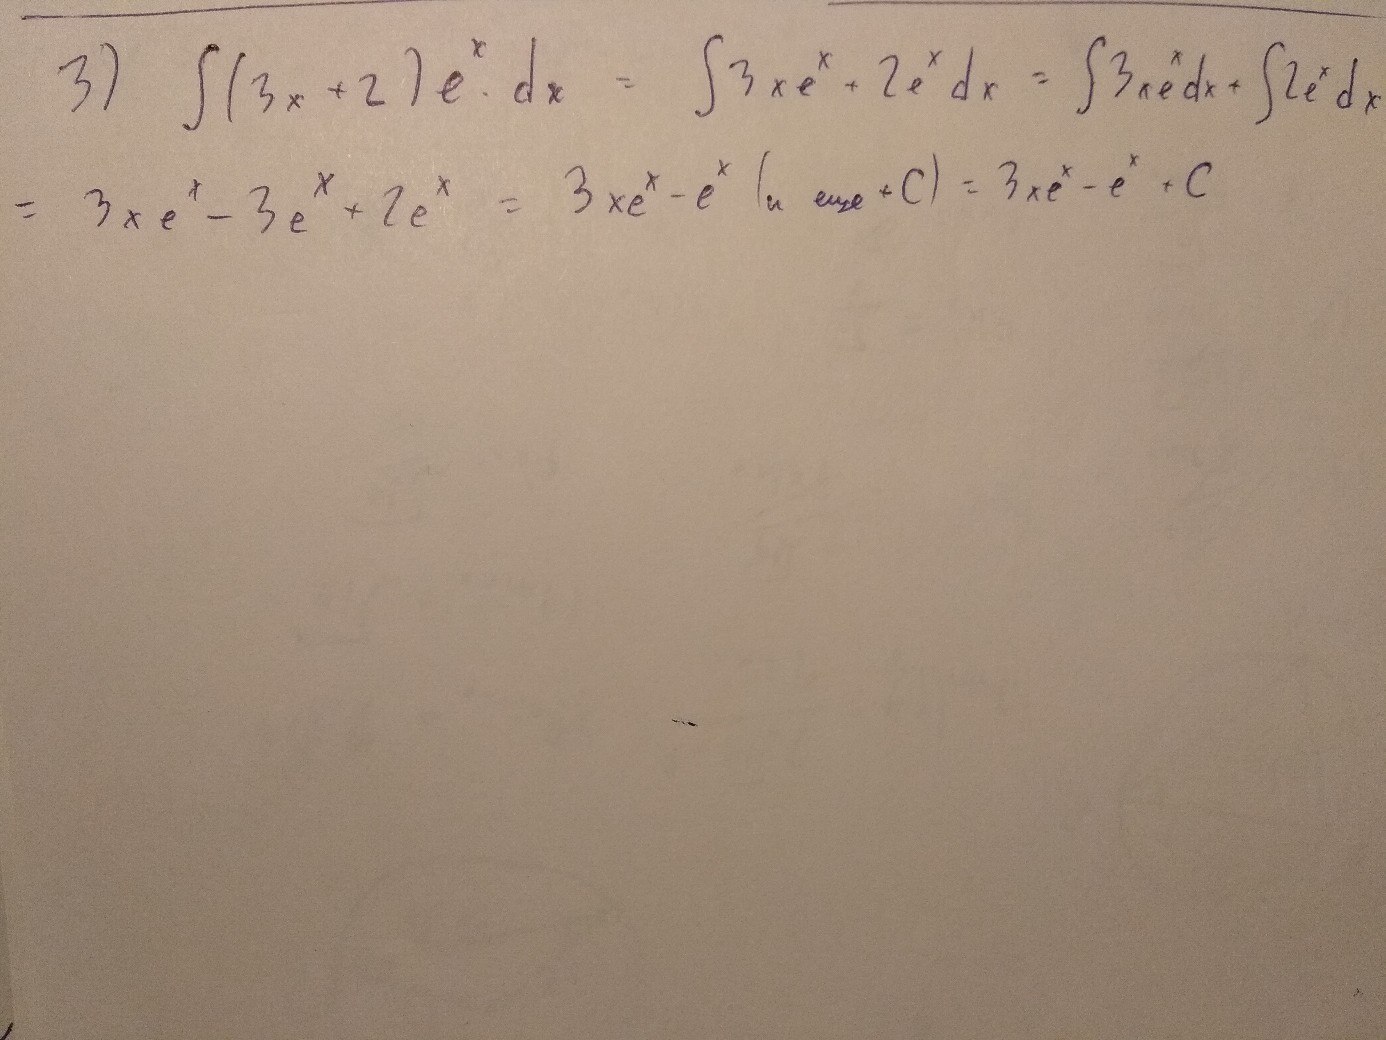 3) ∫(3x+2)eˣ·dx = ∫3xeˣ+2eˣdx = ∫3xeˣdx+∫2eˣdx
= 3xeˣ-3eˣ+2eˣ = 3xeˣ-eˣ (и еще +C) = 3xeˣ-eˣ+C